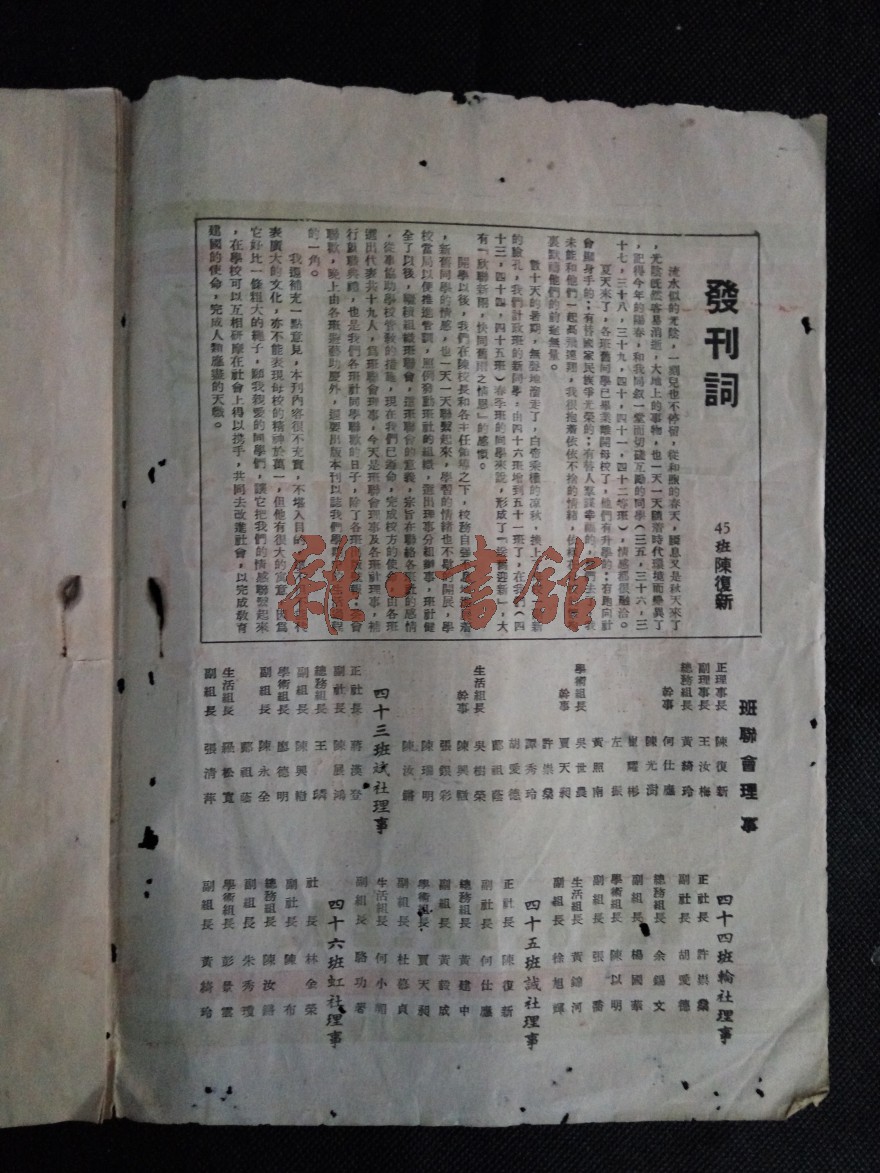 發刊詞
45班陳復新
流水似的光陰，一刻兒也不停留，從和煦的春天，瞬息又是秋天來了
，光陰既然容易消逝，大地上的事物，也一天一天隨着時代環境而變異了
，記得今年的陽春，和我同叙一堂而切磋互勵的同學（三五，三十六，三
十七，三十八，三十九，四十，四十一，四十二等班），情感都很融洽。
夏天來了，各班舊同學已畢業離開母校了，他們有升學的；有跑向社
會顯身手的；有替國家民族爭光榮的；有替人羣謀幸福的，
未能和他們一起高飛遠翔，我很抱着依依不捨的情緒，
裏默禱他們的前途無量。
數十天的暑期，無聲地溜走了，白帝乘權的凉秋，接上
的臉孔，我們計政班的新同學：由四十六班增到五十一班了，在我們（四
十三，四十四，四十五班）春季班的同學來說，形成了「送舊迎新」，大
有一敍聯新雨，快同舊雨之情思」的感懷。
開學以後，我們在陳校長和各主任領導之下，校務自強不息地
，新舊同學的情感，也一天一天聯繫起來，學習的情緒也不歇的開展，學
校當局以便推進管訓，照例發動班社的組織，選出理事分組辦事，班社健
全了以後，繼後組織班聯會，這班聯會的意義，宗旨在聯絡各班社的感情
，從事協助學校管教的措施，現在我們已遵命，完成校方的使命，由各班
選出代表共十九人，為班聯會理事，今天是班聯會理事及各班社理事，補
行就職典禮，也是我們各班社同學聯歡的日子，除了各班出版壁報，聚會
聯歡，晚上由各班遊藝助慶外，還要出版本刊以誌我們學
的一角。
我還補充一點意見，本刊內容很不充實，不堪入目的
表廣大的文化，亦不能表現母校的精神於萬一，但他有很大的寓意，因為
它好比一條粗大的繩子，願我親愛的同學們，讓它把我們的情感聯繫起來
，在學校可以互相研摩在社會上得以携手，共同去改進社會，以完成教育
建國的使命，完成人類應盡的天職。
班聯會理事
正理事長 陳復新
副理事長 王汝梅
總務組長 黃綺玲
幹事 何仕廳
陳光澍
崔耀彬
左振
黃照南
學術組長 吳世農
幹事 賈天昶
許崇燊
譚秀玲
胡愛德
鄺祖蔭
生活組長 吳樹榮
幹事 陳興隆
張銀彩
陳瑞明
陳汝鏘
四十三班斌社理事
正社長 蔣漢登
副社長 陳展鴻
總務組長 王璘
副組長 陳興隆
學術組長 廖德明
副組長 陳永全
鄺祖蔭
生活組長 羅松寬
副組長 張清萍
四十四班輪社理事
正社長 許崇燊
副社長 胡愛德
總務組長 余錫文
副組長 楊國華
學術組長 陳以明
副組長 張喬
生活組長 黃錦河
副組長 徐旭輝
四十五班誠社理事
正社長 陳復新
副社長 何仕廳
總務組長 黃建中
副組長 黃毅成
學術組長 賈天昶
副組長 杜德貞
生活組長 何小圃
副組長 駱功著
四十六班虹社理事
社長 林金榮
副社長 陳布
總務組長 陳汝鏘
副組長 朱秀瓊
學術組長 彭景雲
副組長 黃綺玲
雜·書館